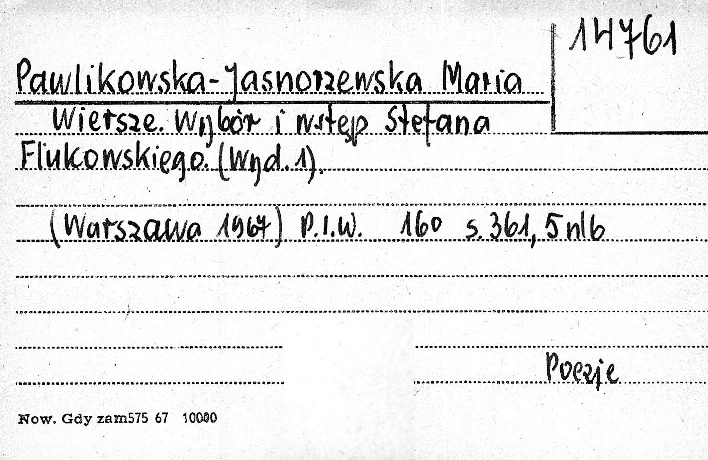 14761
Pawlikowska-Jasnorzewska Maria
Wiersze. Wybór i wstęp Stefana
Flukowskiego. (Wyd. 1).
(Warszawa 1967) P.I.W. 16° s. 361, 5 nlb
Poezje
Now. Gdy zam 575 67 10000